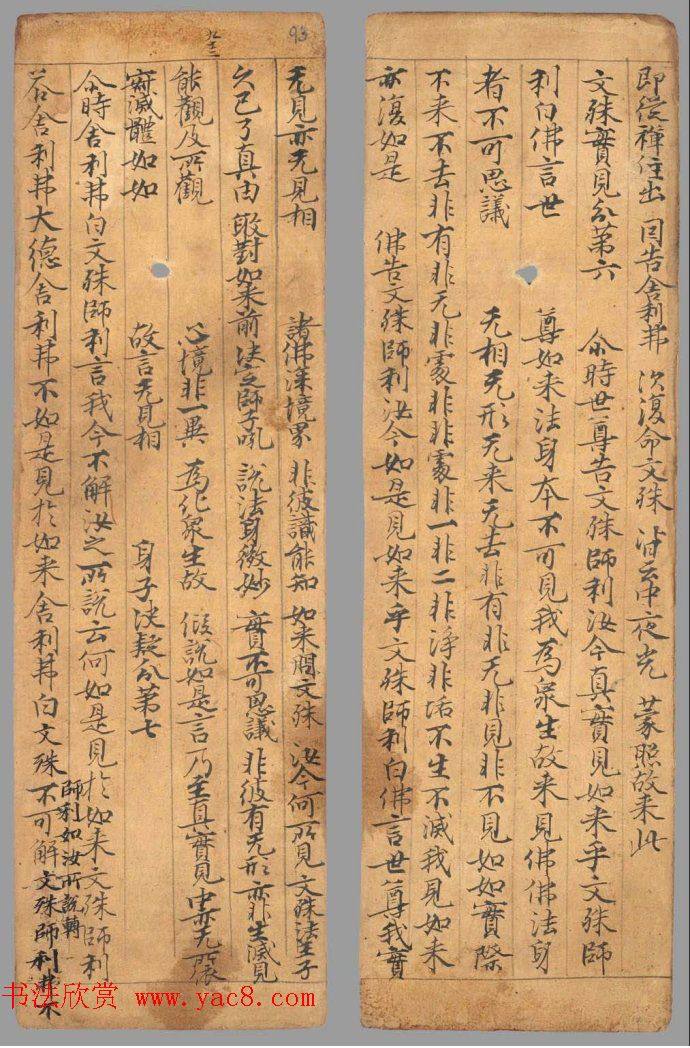 即從禪住出 因告舍利弗 次復命文殊 中夜光 蒙照故來此
文殊實見分第六 尒時世尊告文殊師利汝今真實見如来乎文殊師
利白佛言世 尊如来法身本不可見我為衆生故来見佛佛法身
者不可思議 无相无形无来无去非有非无非見非不見如如實際
不来不去非有非无非處非非處非一非二非淨非垢不生不滅我見如来
亦復如是 佛告文殊師利汝今如是見如来乎文殊師利白佛言世尊我實
93
九十三
无見亦无見相 諸佛深境界 非彼識能知 如来問文殊 汝今何所見 文殊法王子
久已了真由 敢對如来前 決定師子吼 說法身微妙 實不可思議 非彼有无形 亦非生滅見
能觀及所觀 心境非一異 為化衆生故 假說如是言 乃至真實見 中亦无
寂滅體如如 故言无見相 身子決疑分第七
尒時舍利弗白文殊師利言我今不解汝之所說云何如是見於如来文殊師利
答舍利弗大德舍利弗不如是見於如来舍利弗白文殊師利如汝所說轉不可解文殊師利
书法欣赏 www.yac8.com